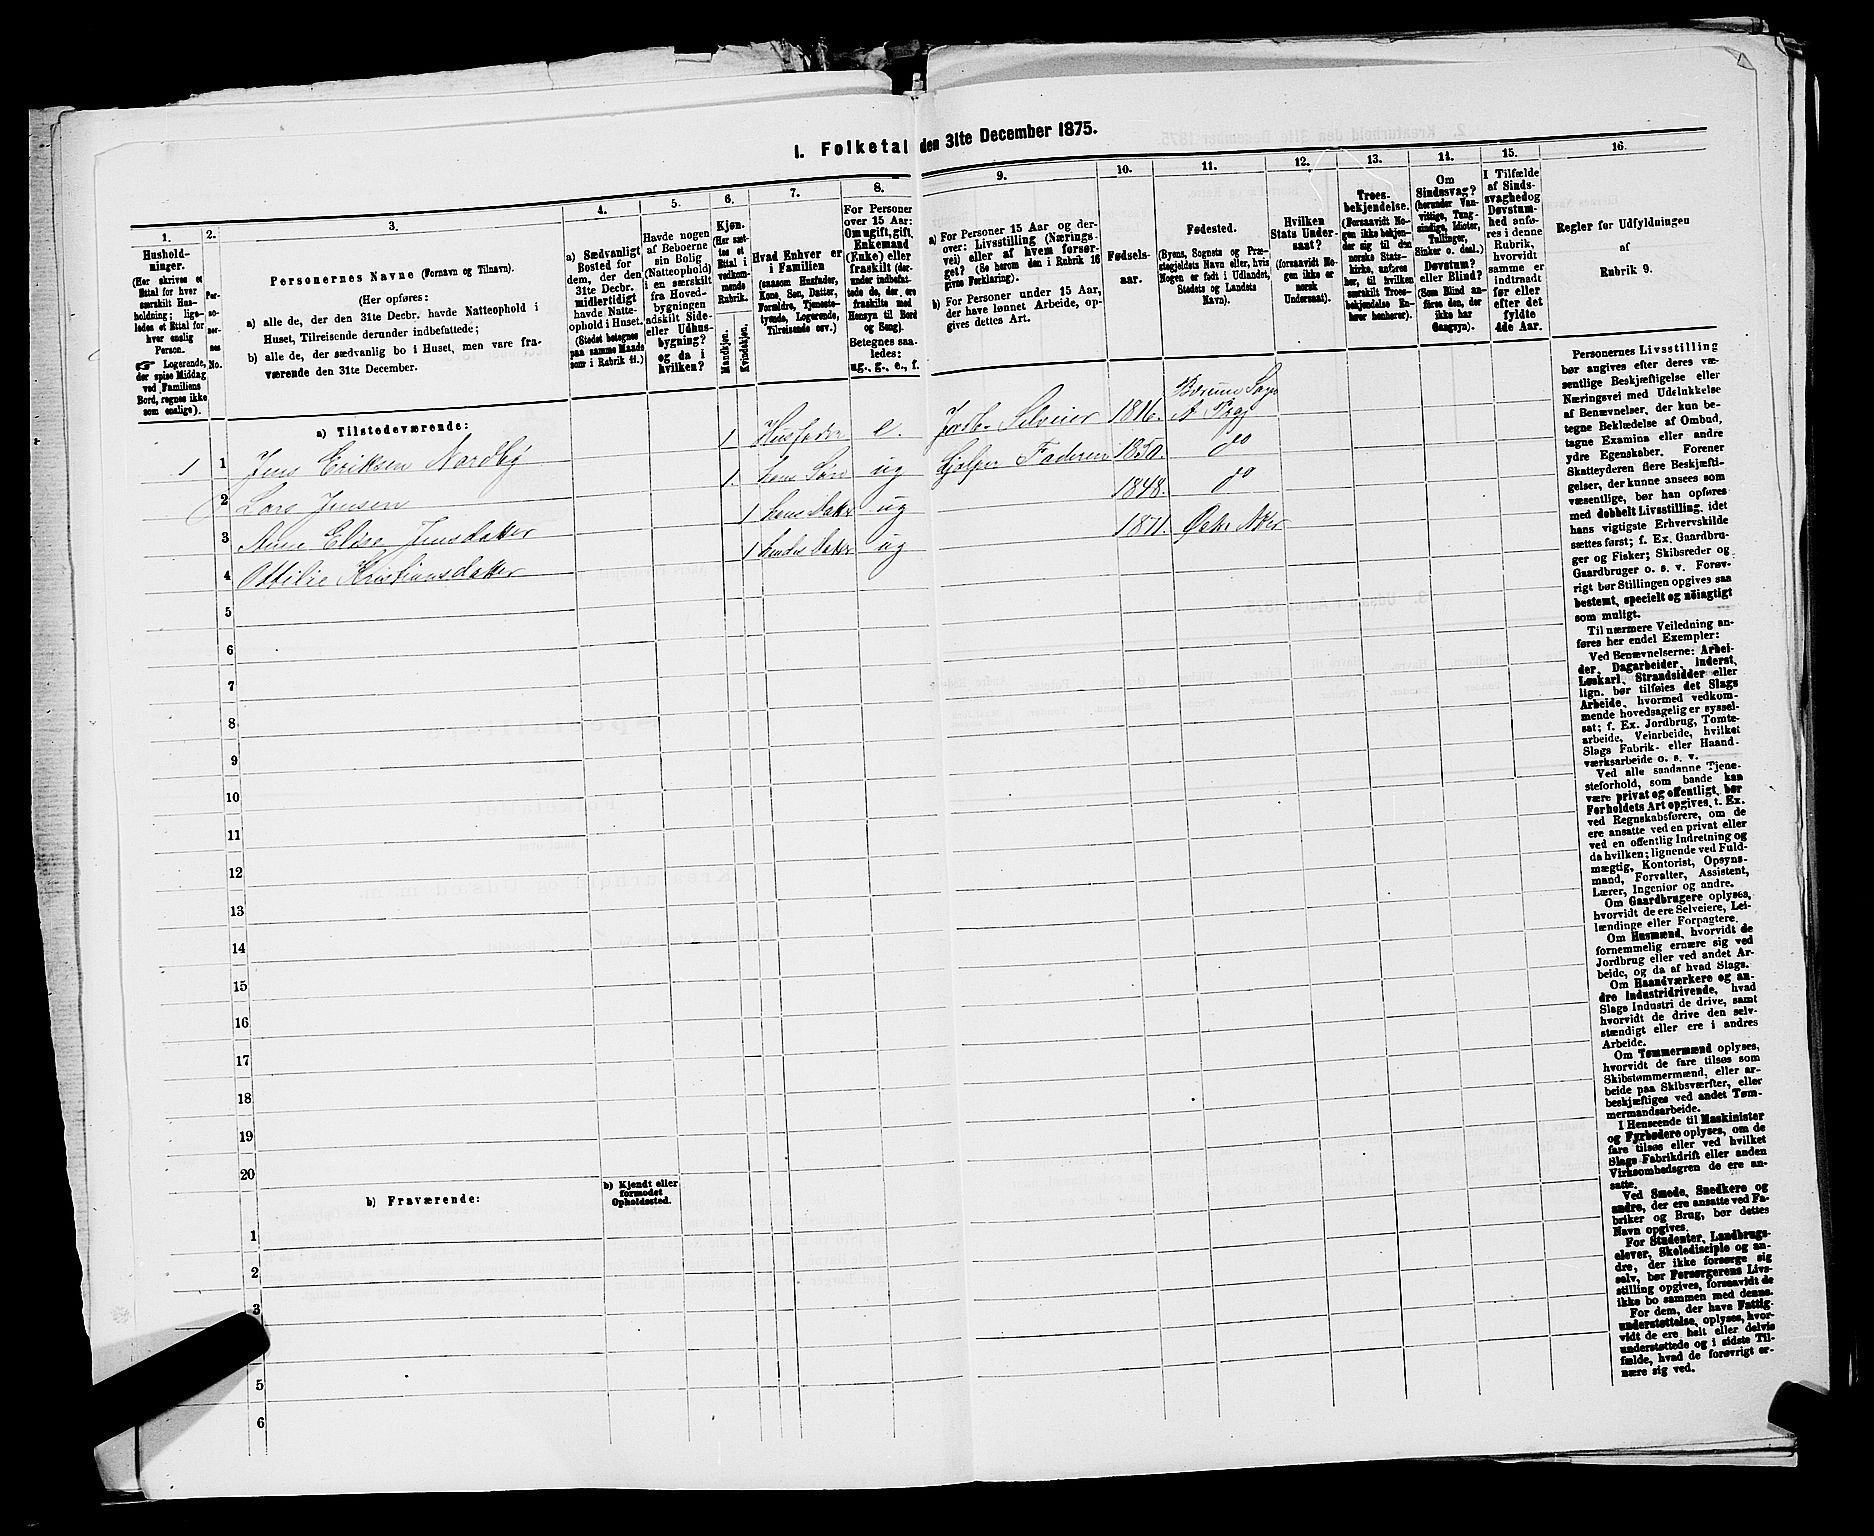 1. Folketal den 31te December 1875.
1.
2.
3.
4.
5.
6.
7.
8.
9.
10.
11.
12.
13.
14.
15.
16.
Hushold-
ninger.
(Her skrives et
Ettal for hver
særskilt Hus-
holdning; lige-
ledes et Ettal for
hver enslig
Person.
☞ Logerende,
der spise Middag
ved Familiens
Bord, regnes ikke
som enslige).
Per-
so-
ner-
nes
No.
Personernes Navne (Fornavn og Tilnavn).
(Her opføres:
a) alle de, der den 31te Decbr. havde Natteophold i
Huset, Tilreisende derunder indbefattede;
b) alle de, der sædvanlig bo i Huset, men vare fra-
værende den 31te December.
a) Sædvanligt
Bosted for
dem, der den
31te Decbr.
midlertidigt
havde Natte-
ophold i Huset.
(Stedet betegnes
paa samme Maade
som i Rubrik 11.)
Havde nogen
af Beboerne
sin Bolig
(Natteophold)
i en særskilt
fra Hoved-
bygningen
adskilt Side-
eller Udhus-
bygning?
og da i
hvilken?
Kjøn.
(Her sæt-
tes et
Ettal i
vedkom-
mende
Rubrik.
Mandkjøn.
Kvindekjøn.
Hvad Enhver er
i Familien
(saasom Husfader,
Kone, Søn, Datter,
Forældre, Tjeneste-
tyende, Logerende,
Tilreisende osv.)
For Personer
over 15 Aar:
Om ugift, gift,
Enkemand
(Enke) eller
fraskilt (der-
under indbefat-
tede de, der ere
fraskilte med
Hensyn til Bord
og Seng).
Betegnes saa-
ledes:
ug., g., e., f.
a) For Personer 15 Aar og der-
over: Livsstilling (Nærings-
vei) eller af hvem forsør-
get? (Se herom den i Rubrik 16
givne Forklaring).
b) For Personer under 15 Aar,
der have lønnet Arbeide, op-
gives dettes Art.
Fødsels-
aar.
Fødested.
(Byens, Sognets og Præ-
stegjeldets Navn eller, hvis
Nogen er født i Udlandet,
Stedets og Landets
Navn).
Hvilken
Stats Under-
saat?
(forsaavidt No-
gen ikke er
norsk
Undersaat).
Troes-
bekjendelse.
(Forsaavidt No-
gen ikke bekjen-
der sig til den
norske Stats-
kirke, anføres
her, til hvilken
særskilt Troes-
bekjendelse En-
hver henhører).
Om
Sindssvag?
(herunder Van-
vittige, Tung-
sindige, Idioter,
Tullinger,
Sinker o. desl.).
Døvstum?
eller Blind?
(Som Blind an-
føres den, der
ikke har
Gangsyn).
I Tilfælde
af Sinds-
svaghed og
Døvstum-
hed anfø-
res i denne
Rubrik,
hvorvidt
samme er
indtraadt
før eller
efter det
fyldte
4de Aar.
Regler for Udfyldningen
af
Rubrik 9.
a) Tilstedeværende:
1 1 Jens Eriksen Nordby 1 Husfader e. Jordbr Selveier 1816. Sogn
A Prgj
2 Lars Jensen 1. hans Søn ug hjelper Faderen 1850. do
3 Anne Elise Jensdatter 1 hans Datter ug 1848. do
4 Ottilie Kristiansdatter 1 hendes Datter ug 1871. Aker
5
6
7
8
9
10
11
12
13
14
15
16
17
18
19
20
b) Fraværende:
b) Kjendt eller
formodet
Opholdssted.
1
2
3
5
6
Personernes Livsstilling
bør angives efter deres væ-
sentlige Beskjæftigelse eller
Næringsvei med Udelukkelse
af Benævnelser, der kun be-
tegne Beklædelse af Ombud,
tagne Examina eller andre
ydre Egenskaber. Forener
Skatteyderen flere Beskjæfti-
gelser, der kunne ansees som
væsentlige, bør han opføres
med dobbelt Livsstilling, idet
hans vigtigste Erhvervskilde
sættes først; f. Ex. Gaardbru-
ger og Fisker; Skibsreder og
Gaardbruger o. s. v. Forøv-
rigt bør Stillingen opgives saa
bestemt, specielt og nöiagtigt
som muligt.
Til nærmere Veiledning an-
føres her endel Exempler:
Ved Benævnelserne: Arbei-
der, Dagarbeider, Inderst,
Løskarl, Strandsidder eller
lign. bør tilføies det Slags
Arbeide, hvormed vedkom-
mende hovedsagelig er syssel-
sat; f. Ex. Jordbrug, Tomte-
arbeide, Veiarbeide, hvilket
Slags Fabrik- eller Haand-
værksarbeide o. s. v.
Ved alle saadanne Tjene-
steforhold, som baade kan
være privat og offentligt, bør
Forholdets Art opgives, t. Ex.
ved Regnskabsførere, om de
ere ansatte ved en privat eller
ved en offentlig Indretning og
da hvilken; lignende ved Fuld-
mægtig, Kontorist, Opsyns-
mand, Forvalter, Assistent,
Lærer, Ingeniør og andre.
Om Gaardbrugere oplyses,
hvorvidt de ere Selveiere, Lei-
lændinge eller Forpagtere.
Om Husmænd, hvorvidt de
fornemmelig ernære sig ved
Jordbrug eller ved andet Ar-
beide, og da af hvad Slags.
Om Haandværkere og an-
dre Industridrivende, hvad
Slags Industri de drive, samt
hvorvidt de drive den selv-
stændigt eller ere i andres
Arbeide.
Om Tømmermænd oplyses,
hvorvidt de fare tilsøs som
Skibstømmermænd, eller ar-
beide paa Skibsværfter, eller
beskjæftiges ved andet Tøm-
mermandsarbeide.
I Henseende til Maskinister
og Fyrbødere oplyses, om de
fare tilsøs eller ved hvilket
Slags Fabrikdrift eller anden
Virksomhedsgren de ere an-
satte.
Ved Smede, Snedkere og
andre, der ere ansatte ved Fa-
briker og Brug, bør dettes
Navn opgives.
For Studenter, Landbrugs-
elever, Skoledisciple og an-
dre, der ikke forsørge sig
selv, bør Forsørgerens Livs-
stilling opgives, forsaavidt de
ikke bo sammen med denne.
For dem, der have Fattig-
understøttelse, oplyses, hvor-
vidt de ere helt eller delvis
understøttede og i sidste Til-
fælde, hvad de forøvrigt er-
nære sig ved.